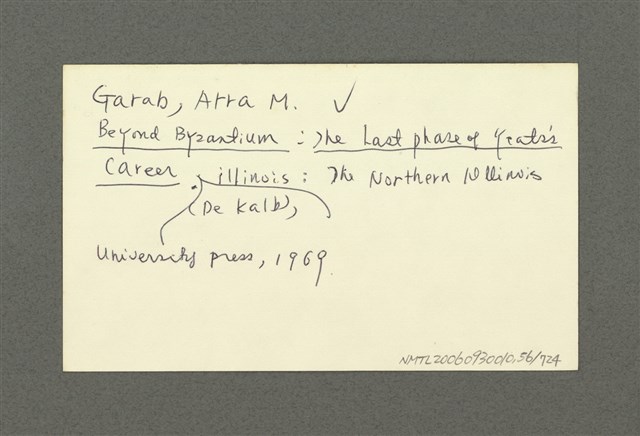 Garab, Arra M. ✓
Beyond Byzantium : The Last phase of Yeats's
Career. illinois : The Northern Illinois
(De Kalb),
University press, 1969.
NMTL20060930010.56/724